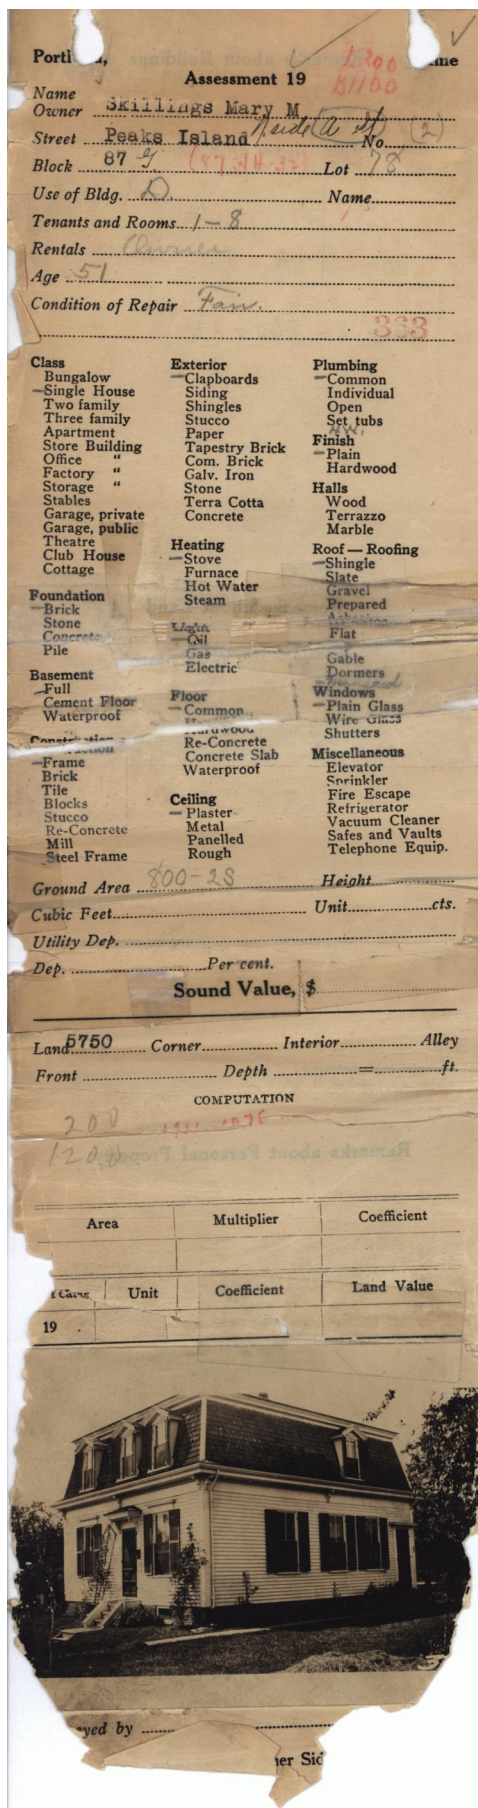 Assessment 19
L200
B1100
Name
Owner Skillings Mary M
Street Peaks Island N side A St No. (2)
Block 87 G (87-HH-32) Lot 78
Use of Bldg. D. Name
Tenants and Rooms 1-8
Rentals Owner
Age 51
Condition of Repair Fair.
363
Class
Bungalow
Single House
Two family
Three family
Apartment
Store Building
Office "
Factory "
Storage "
Stables
Garage, private
Garage, public
Theatre
Club House
Cottage
Foundation
Brick
Stone
Concrete
Pile
Basement
Full
Cement Floor
Waterproof
Construction
Frame
Brick
Tile
Blocks
Stucco
Re-Concrete
Mill
Steel Frame
Exterior
Clapboards
Siding
Shingles
Stucco
Paper
Tapestry Brick
Com. Brick
Galv. Iron
Stone
Terra Cotta
Concrete
Heating
Stove
Furnace
Hot Water
Steam
Light
Oil
Gas
Electric
Floor
Common
Hardwood
Re-Concrete
Concrete Slab
Waterproof
Ceiling
Plaster
Metal
Panelled
Rough
Plumbing
Common
Individual
Open
Set tubs
Finish
Plain
Hardwood
Halls
Wood
Terrazzo
Marble
Roof — Roofing
Shingle
Slate
Gravel
Prepared
Asbestos
Flat
Gable
Dormers
Mansard
Windows
Plain Glass
Wire Glass
Shutters
Miscellaneous
Elevator
Sprinkler
Fire Escape
Refrigerator
Vacuum Cleaner
Safes and Vaults
Telephone Equip.
Ground Area 800-2S Height
Cubic Feet Unit cts.
Utility Dep.
Dep. Per cent.
Sound Value, $
Land 5750 Corner Interior Alley
Front Depth = ft.
COMPUTATION
200
1200
Remarks about Personal Property
Area Multiplier Coefficient
Unit Coefficient Land Value
19
yed by
er Sid